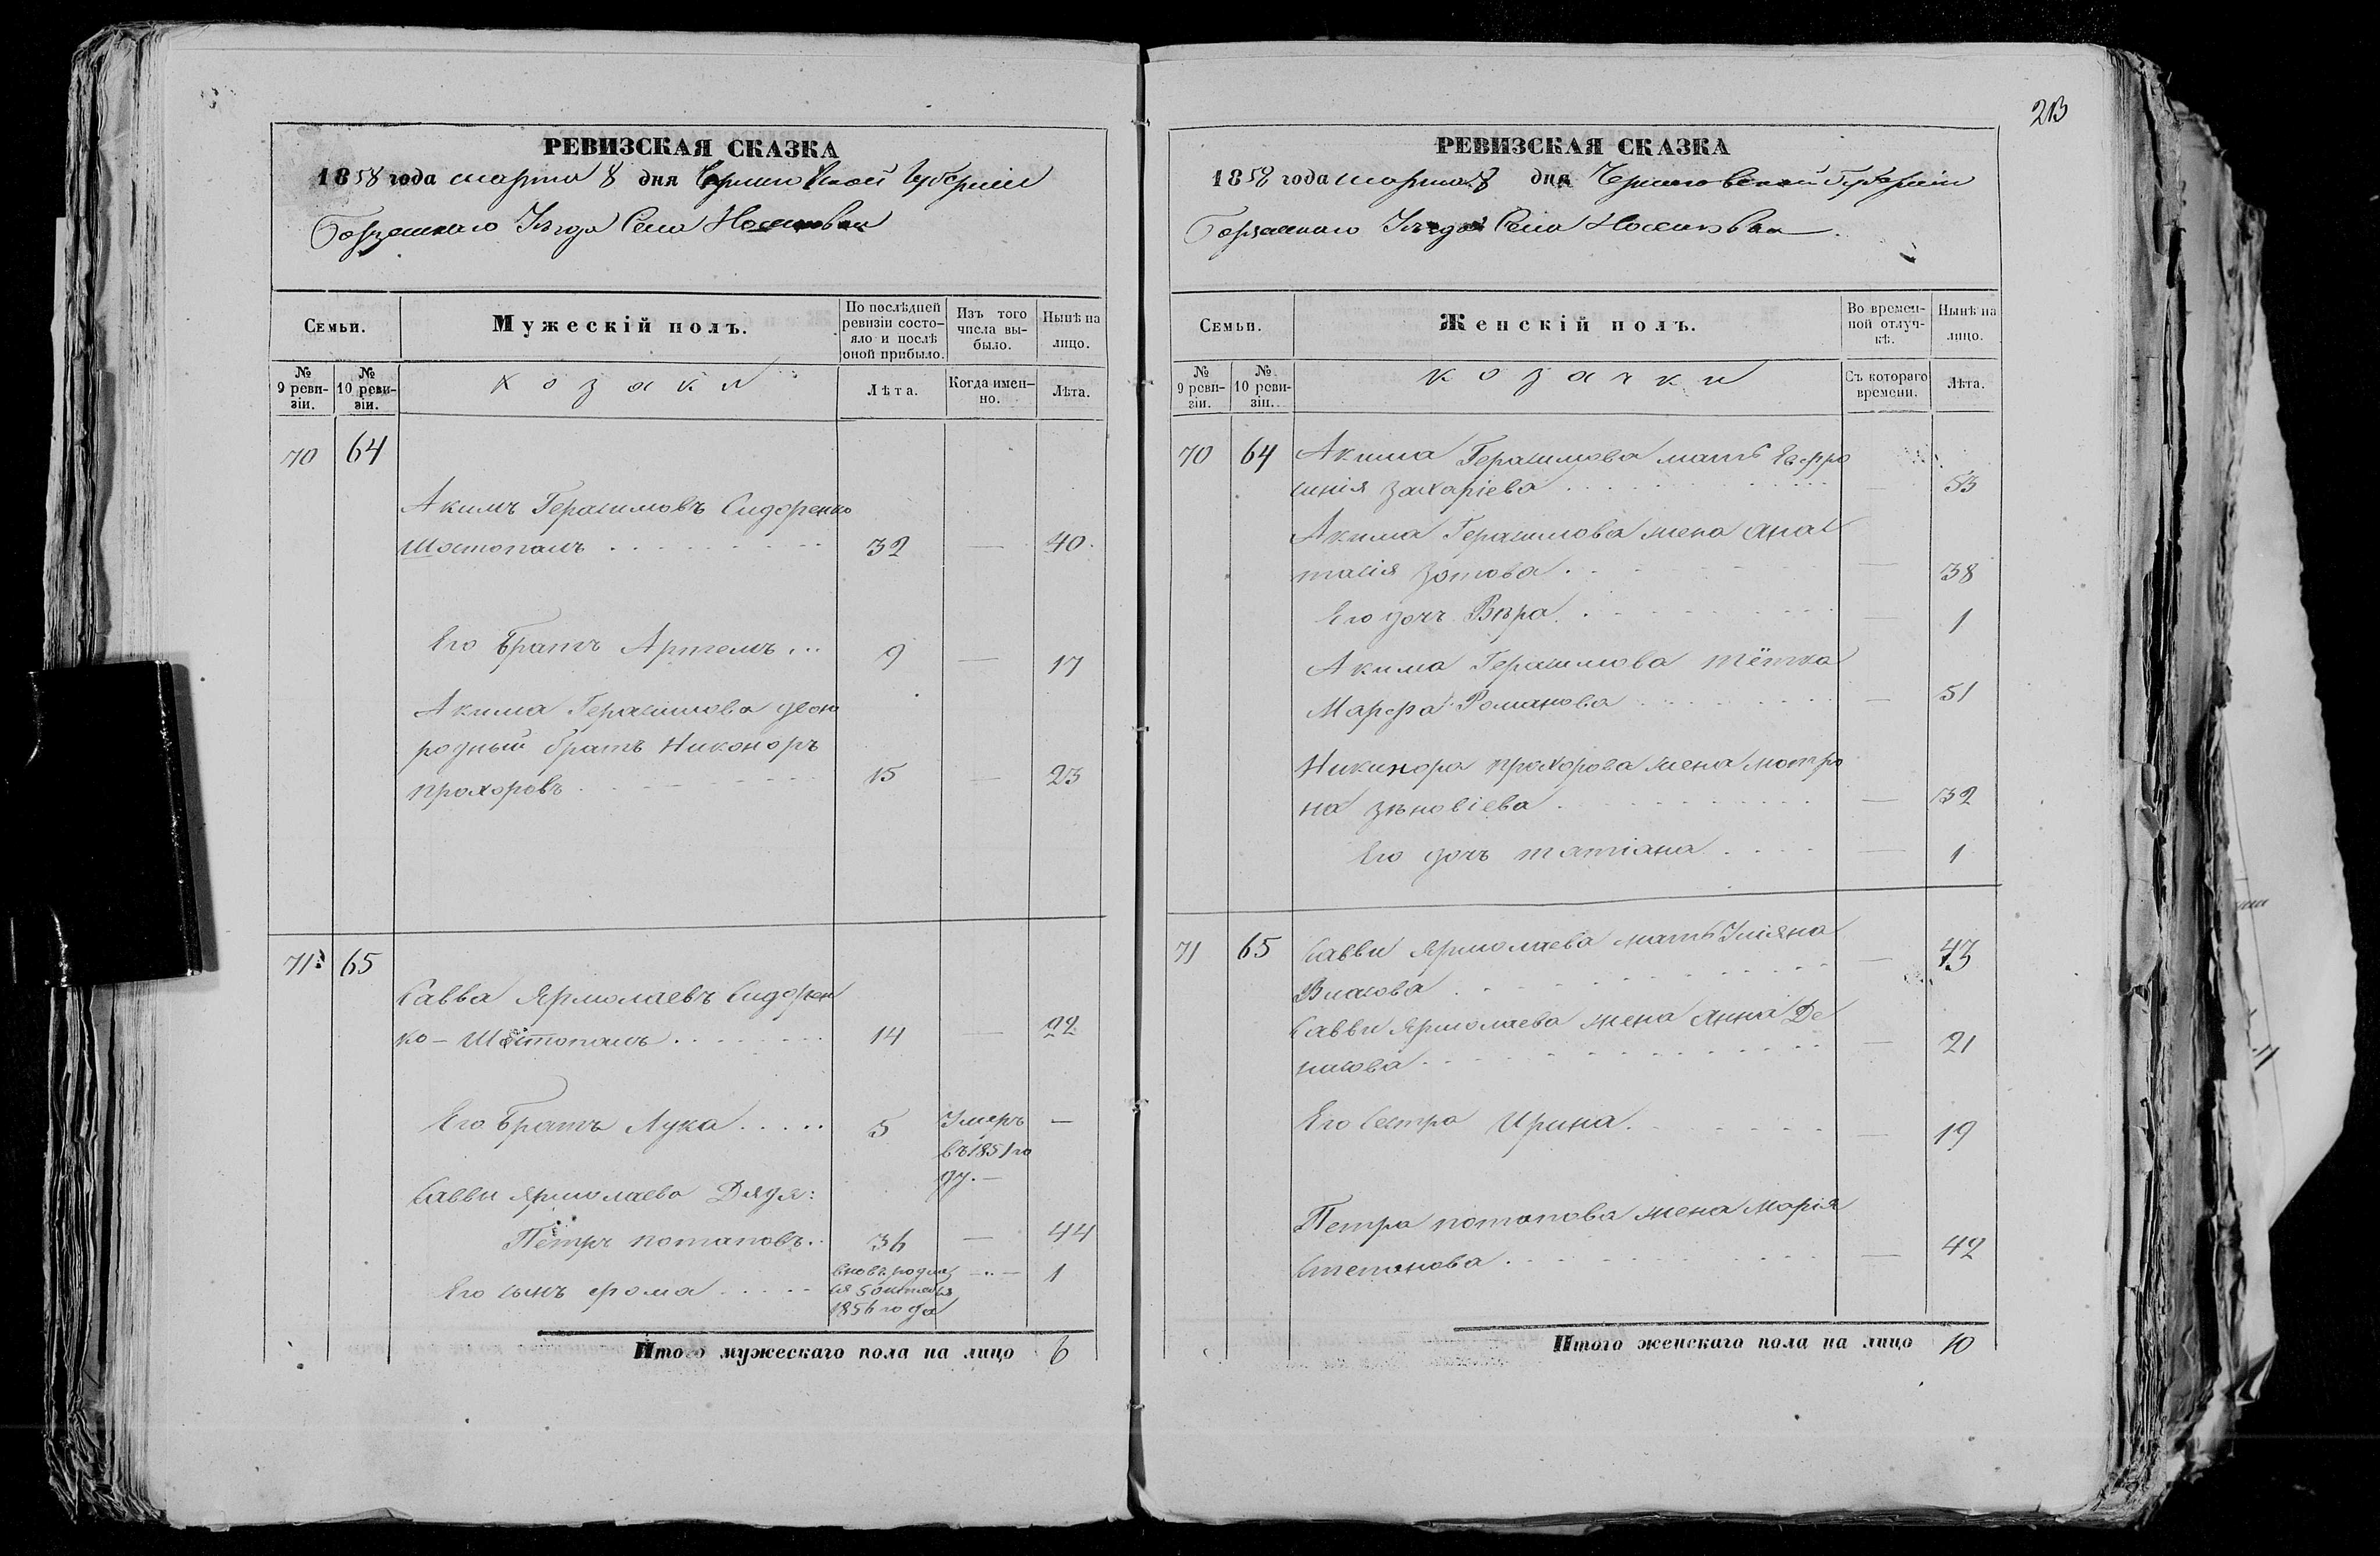 РЕВИЗСКАЯ СКАЗКА
1858 года марта 8 дня Черниговской Губерніи
Борзенскаго Уѣзда Села
Семьи.
Мужескій полъ.
По послѣдней ревизіи состояло и послѣ оной прибыло.
Изъ того числа выбыло.
Нынѣ на лицо.
№ 9 ревизіи.
№ 10 ревизіи.
Козаки
Лѣта.
Когда именно.
Лѣта.
70 64
Акимъ Герасимовъ Сидоренко
Шостопалъ 32 — 40.
Его братъ Артемъ 9 — 17
Акима Герасимова двою
родный братъ Никоноръ
прохоровъ 15 — 23
71 65
Савва Ярмолаевъ Сидорен
ко - Шостопалъ 14 — 22
Его братъ Лука 5 Умеръ —
въ 1851 го
ду. —
Саввы Ярмолаева Дядя:
Петръ потаповъ 36 — 44
Его сынъ фома 1
вновь родил
ся 5 октября
1856 года
Итого мужескаго пола на лицо 6
213
РЕВИЗСКАЯ СКАЗКА
1858 года марта 8 дня Черниговской Губерніи
Борзенскаго Уѣзда Села
Семьи.
Женскій полъ.
Во временной отлучкѣ.
Нынѣ на лицо.
№ 9 ревизіи.
№ 10 ревизіи.
Козачки
Съ котораго времени.
Лѣта.
70 64 Акима Герасимова мать Евфро
синія захаріева — 53
Акима Герасимова жена анас
тасія зотова — 38
Его дочь Вѣра — 1
Акима Герасимова тётка
Марфа Романова — 51
Никинора прохорова жена мотро
на зѣновіева — 32
Его дочь татіана — 1
71 65 Саввы Ярмолаева мать Уліяна
Власова — 43
Саввы Ярмолаева жена Анна Де
нисова — 21
Его Сестра Ирина — 19
Петра потапова жена Марія
Степанова — 42
Итого женскаго пола на лицо 10